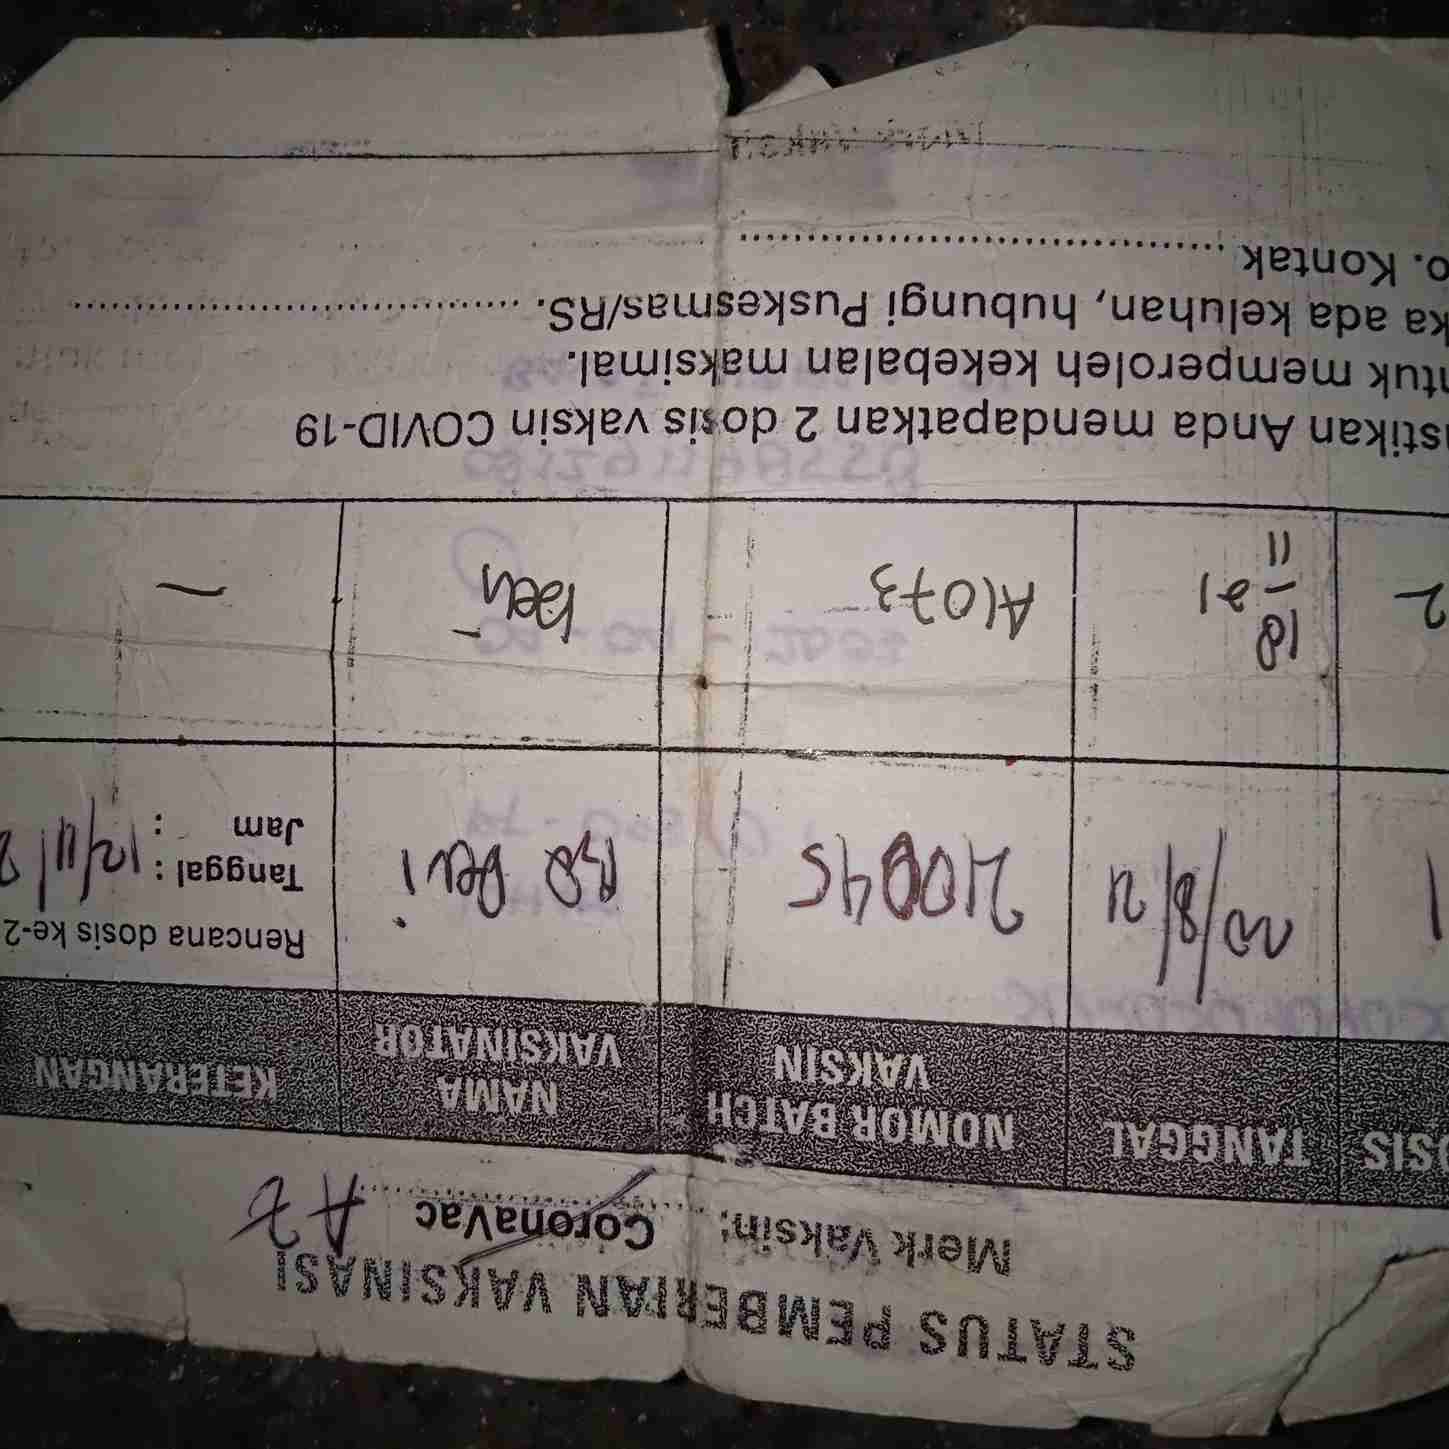 STATUS PEMBERIAN VAKSINASI
Merk Vaksin: CoronaVac AZ
OSIS TANGGAL NOMOR BATCH VAKSIN NAMA VAKSINATOR KETERANGAN
1 210045 Rencana dosis ke-2
Tanggal :
Jam :
2 18/11 21 A1073 —
stikan Anda mendapatkan 2 dosis vaksin COVID-19
ntuk memperoleh kekebalan maksimal.
ka ada keluhan, hubungi Puskesmas/RS. ........................................
o. Kontak ........................................